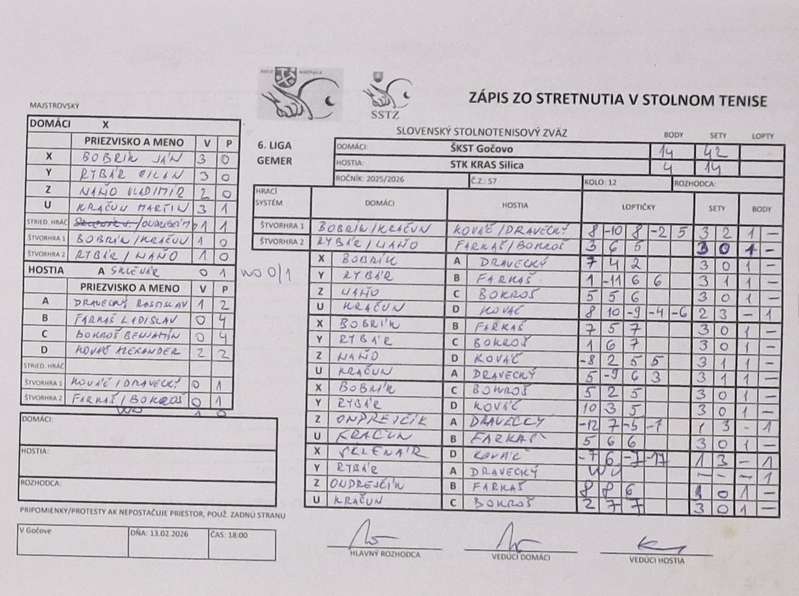 SSTZ
ZÁPIS ZO STRETNUTIA V STOLNOM TENISE
SLOVENSKÝ STOLNOTENISOVÝ ZVÄZ
MAJSTROVSKÝ
DOMÁCI X
PRIEZVISKO A MENO V P
X BOBRÍK JÁN 3 0
Y RYBÁR MILAN 3 0
Z HAŇO VLADIMÍR 2 0
U KRAČUN MARTIN 3 1
STRIED. HRÁČ 1 1
ŠTVORHRA 1 BOBRÍK/KRAČUN 1 0
ŠTVORHRA 2 RYBÁR/HAŇO 1 0
HOSTIA A SKLENÁR 0 1 WO 0/1
PRIEZVISKO A MENO V P
A DRAVECKÝ RASTISLAV 1 2
B FARKAŠ LADISLAV 0 4
C BOKROŠ BENJAMÍN 0 4
D KOVÁČ ALEXANDER 2 2
STRIED. HRÁČ
ŠTVORHRA 1 KOVÁČ/DRAVECKÝ 0 1
ŠTVORHRA 2 FARKAŠ/BOKROŠ 0 1
WO 1 0
DOMÁCI:
HOSTIA:
ROZHODCA:
PRIPOMIENKY/PROTESTY AK NEPOSTAČUJE PRIESTOR, POUŽ. ZADNÚ STRANU
V Gočove DŇA: 13.02.2026 ČAS: 18:00
BODY SETY LOPTY
6. LIGA GEMER
DOMÁCI: ŠKST Gočovo 14 42
HOSTIA: STK KRAS Silica 4 14
ROČNÍK: 2025/2026 Č.Z.: 57 KOLO: 12 ROZHODCA:
HRACÍ SYSTÉM DOMÁCI HOSTIA LOPTIČKY SETY BODY
ŠTVORHRA 1 BOBRÍK/KRAČUN KOVÁČ/DRAVECKÝ 8 -10 8 -2 5 3 2 1 -
ŠTVORHRA 2 RYBÁR/HAŇO FARKAŠ/BOKROŠ 3 6 5 3 0 1 -
X BOBRÍK A DRAVECKÝ 7 4 2 3 0 1 -
Y RYBÁR B FARKAŠ 1 -11 6 6 3 1 1 -
Z HAŇO C BOKROŠ 5 5 6 3 0 1 -
U KRAČUN D KOVÁČ 8 10 -9 -4 -6 2 3 - 1
X BOBRÍK B FARKAŠ 7 5 7 3 0 1 -
Y RYBÁR C BOKROŠ 1 6 7 3 0 1 -
Z HAŇO D KOVÁČ -8 2 5 5 3 1 1 -
U KRAČUN A DRAVECKÝ 5 -9 6 3 3 1 1 -
X BOBRÍK C BOKROŠ 5 2 5 3 0 1 -
Y RYBÁR D KOVÁČ 10 3 5 3 0 1 -
Z ONDREJČÍK A DRAVECKÝ -12 7 -5 -7 1 3 - 1
U KRAČUN B FARKAŠ 5 6 6 3 0 1 -
X SKLENÁR D KOVÁČ -7 6 -7 -17 1 3 - 1
Y RYBÁR A DRAVECKÝ WO - - - 1
Z ONDREJČÍK B FARKAŠ 8 8 6 3 0 1 -
U KRAČUN C BOKROŠ 2 7 7 3 0 1 -
HLAVNÝ ROZHODCA VEDÚCI DOMÁCI VEDÚCI HOSTIA